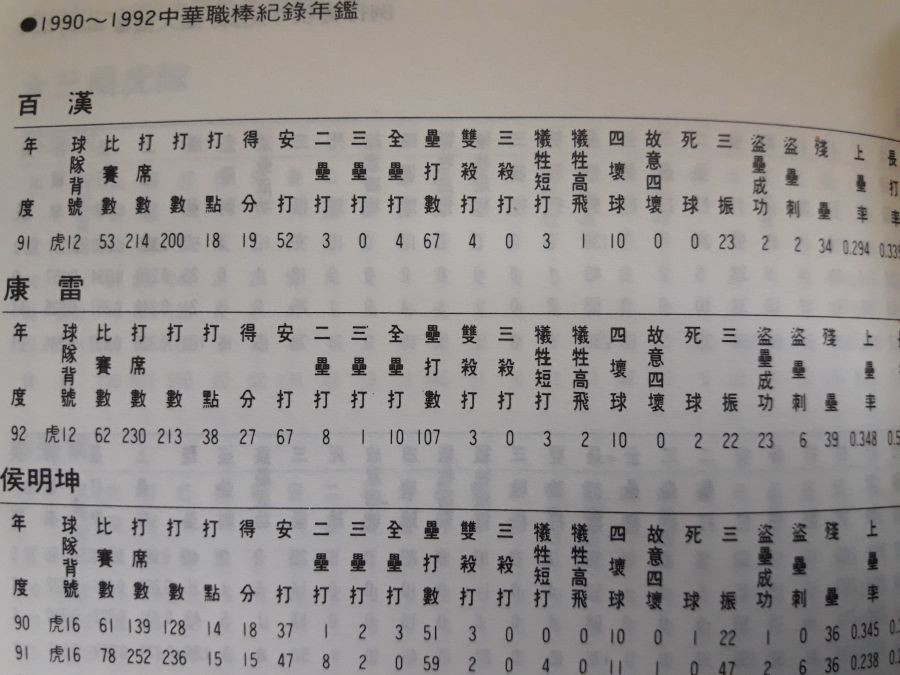 ●1990~1992中華職棒紀錄年鑑
百漢
年度 球隊背號 比賽數 打席數 打數 打點 得分 安打 二壘打 三壘打 全壘打 壘打數 雙殺打 三殺打 犧牲短打 犧牲高飛 四壞球 故意四壞 死球 三振 盜壘成功 盜壘刺 殘壘 上壘率 長打率
91 虎12 53 214 200 18 19 52 3 0 4 67 4 0 3 1 10 0 0 23 2 2 34 0.294 0.335
康雷
年度 球隊背號 比賽數 打席數 打數 打點 得分 安打 二壘打 三壘打 全壘打 壘打數 雙殺打 三殺打 犧牲短打 犧牲高飛 四壞球 故意四壞 死球 三振 盜壘成功 盜壘刺 殘壘 上壘率
92 虎12 62 230 213 38 27 67 8 1 10 107 3 0 3 2 10 0 2 22 23 6 39 0.348
侯明坤
年度 球隊背號 比賽數 打席數 打數 打點 得分 安打 二壘打 三壘打 全壘打 壘打數 雙殺打 三殺打 犧牲短打 犧牲高飛 四壞球 故意四壞 死球 三振 盜壘成功 盜壘刺 殘壘 上壘率
90 虎16 61 139 128 14 18 37 1 2 3 51 3 0 0 0 10 0 1 22 1 0 36 0.345
91 虎16 78 252 236 15 15 47 8 2 0 59 2 0 4 0 11 1 0 47 2 6 36 0.238